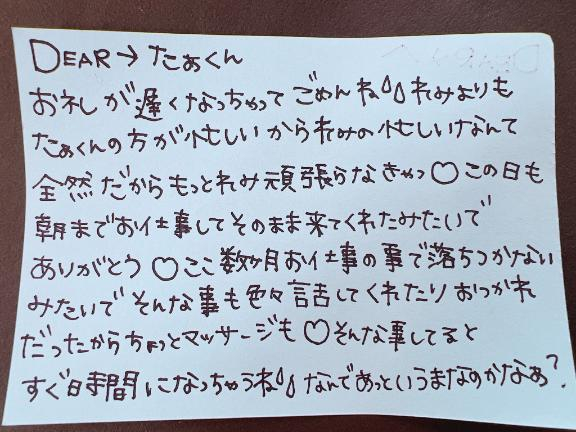 DEAR→たぁくん
お礼が遅くなっちゃってごめんね💧れみよりも
たぁくんの方が忙しいかられみの忙しいなんて
全然だからもっとれみ頑張らなきゃっ♡この日も
朝までお仕事してそのまま来てくれたみたいで
ありがとう♡ここ数ヶ月お仕事の事で落ちつかない
みたいでそんな事も色々話してくれたりおつかれ
だったからちょっとマッサージも♡そんな事してると
すぐ時間になっちゃうね💧なんであっというまなのかなぁ?